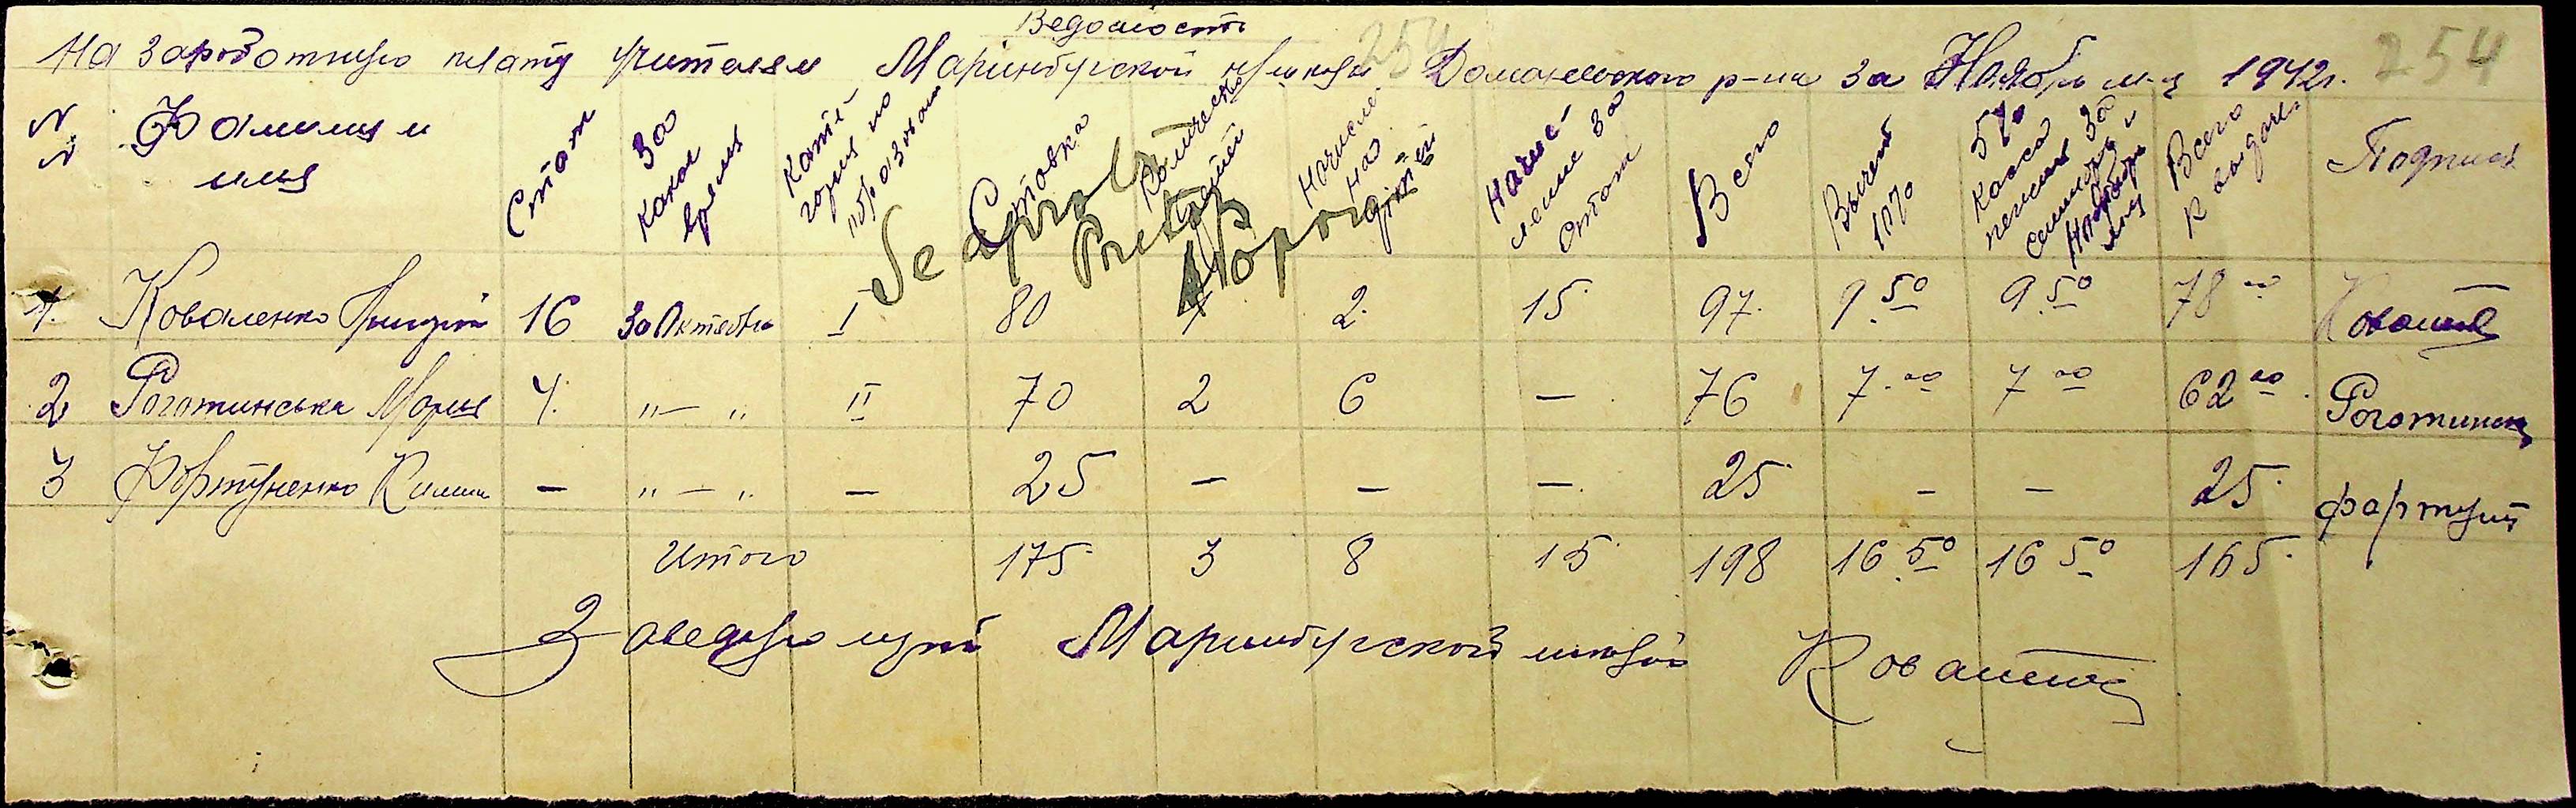 Ведомость
На заработную плату учителям Маринбургской н/школы Доманевского р-на за Ноябрь м-ц 1942г. 254
№№ Фамилия и имя Стаж За какое время Категория по образован Ставка Количество детей Начисле. на детей Начисление за стаж Всего Вычет 10% 5% касса пенсия за сентябрь и ноябрь м-ц Всего к выдаче Подпись
Se aprobă
Pretor
1. Коваленко 16 За Октябрь I 80 1 2. 15. 97. 9.50 9.50 78 00
2 Роготинська Мария 4. "—" II 70 2 6 — 76 7.00 7 00 62 00. Роготинск
3 Фортуненко — "—" — 25 — — — 25 — — 25. фартун
Итого 175 3 8 15 198 16.50 16 50 165.
Заведующий Маринбургской школой